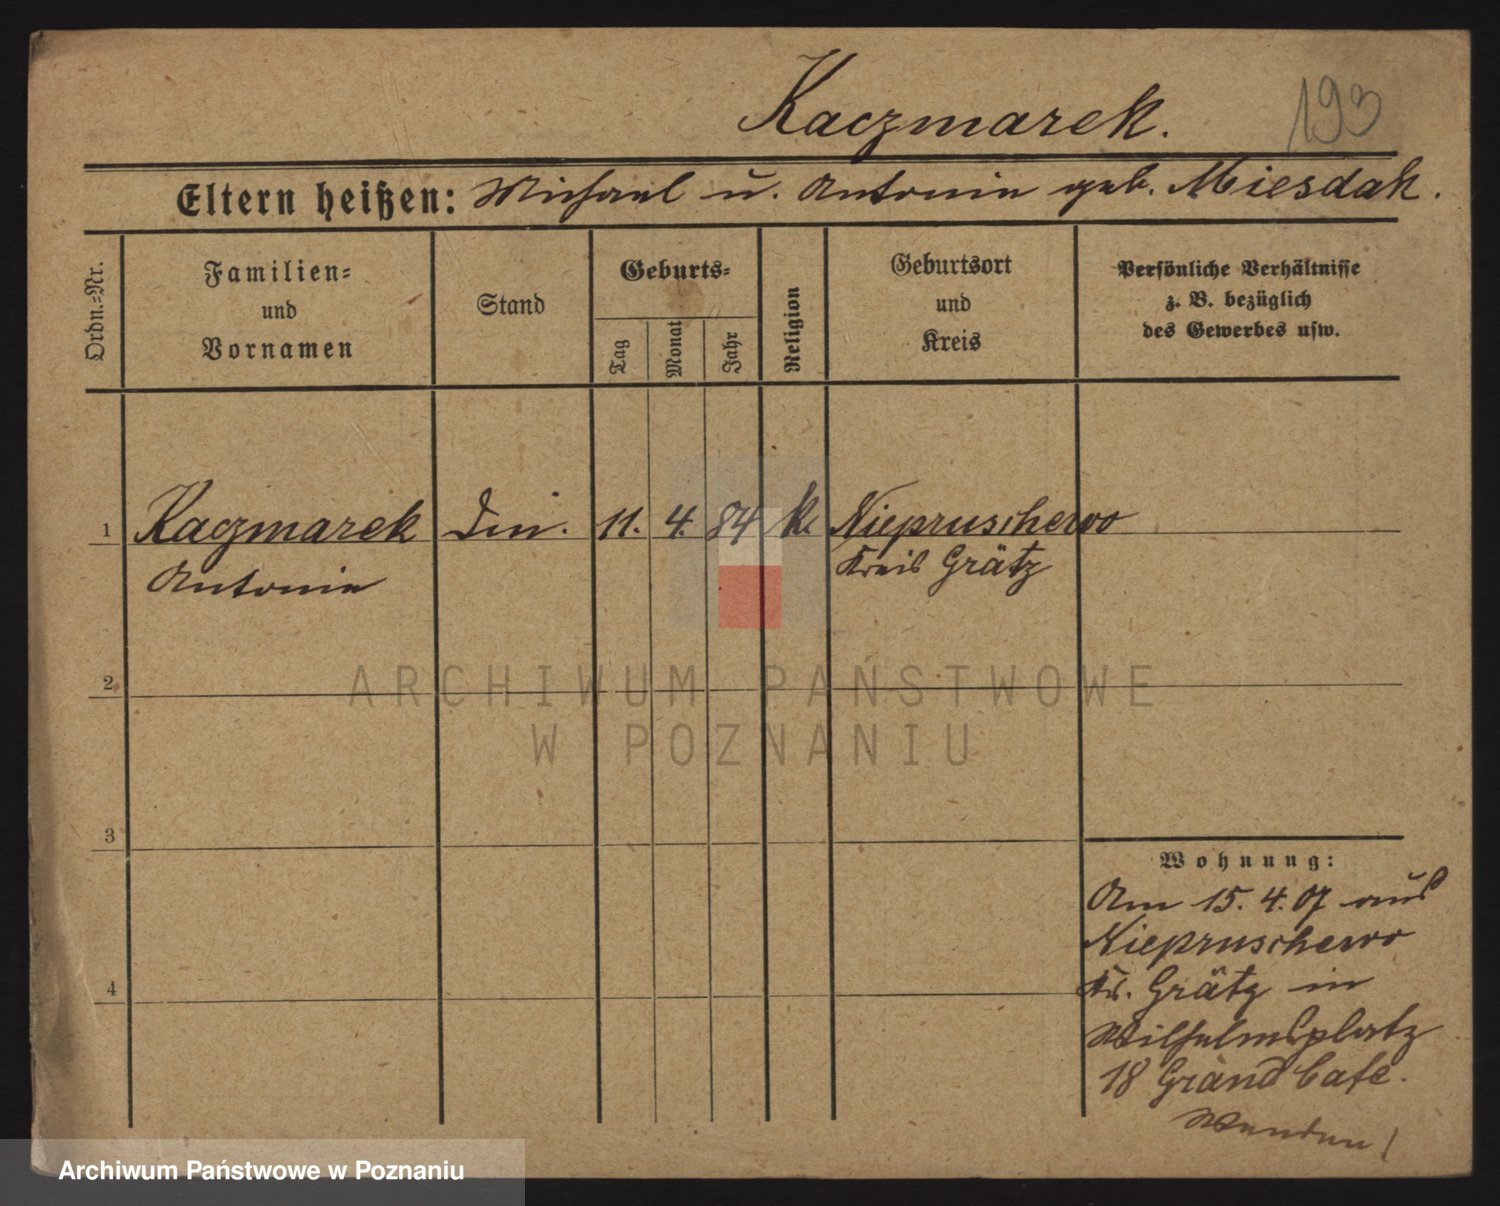 Kaczmarek.
193
Eltern heißen: Michael u. Antonie geb. Miesdak.
Ordn.-Nr.
Familien-
und
Vornamen
Stand
Geburts-
Tag
Monat
Jahr
Religion
Geburtsort
und
Kreis
Persönliche Verhältnisse
z. B. bezüglich
des Gewerbes usw.
1 Kaczmarek 11. 4. 84 k. Niepruschewo
Antonie Kreis Grätz
2
ARCHIWUM PAŃSTWOWE
W POZNANIU
3
Wohnung:
Am 15. 4. 07 aus
Niepruschewo
4
Kr. Grätz in
Wilhelmsplatz
18 Grand Cafe.
Wenden!
Archiwum Państwowe w Poznaniu